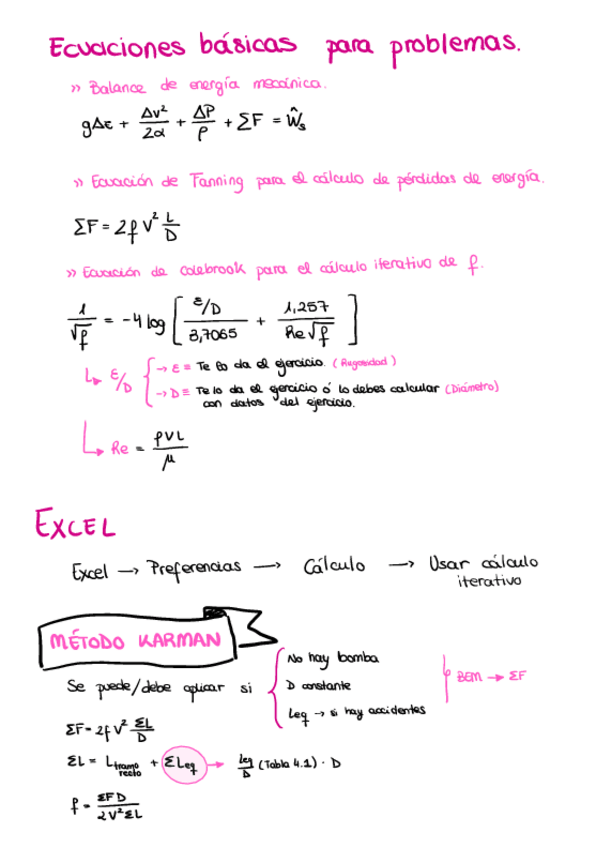 Ecuaciones básicas para problemas.
» Balance de energía mecánica.
gΔz + Δv²/2α + ΔP/ρ + ΣF = Ŵs
» Ecuación de Fanning para el cálculo de pérdidas de energía.
ΣF = 2f V² L/D
» Ecuación de Colebrook para el cálculo iterativo de f.
1/√f = -4 log [ (ε/D)/3,7065 + 1,257/(Re√f) ]
↳ ε/D { → ε ≡ Te lo da el ejercicio. (Rugosidad)
→ D ≡ Te lo da el ejercicio ó lo debes calcular (Diámetro)
con datos del ejercicio.
↳ Re = ρVL/μ
EXCEL
Excel → Preferencias → Cálculo → Usar cálculo
iterativo
MÉTODO KARMAN
Se puede/debe aplicar si { No hay bomba
D constante
Leq → si hay accidentes
↳ BEM → ΣF
ΣF = 2f V² ΣL/D
ΣL = L tramo recto + ΣLeq → Leq/D (Tabla 4.1) · D
f = ΣF D/2V²ΣL